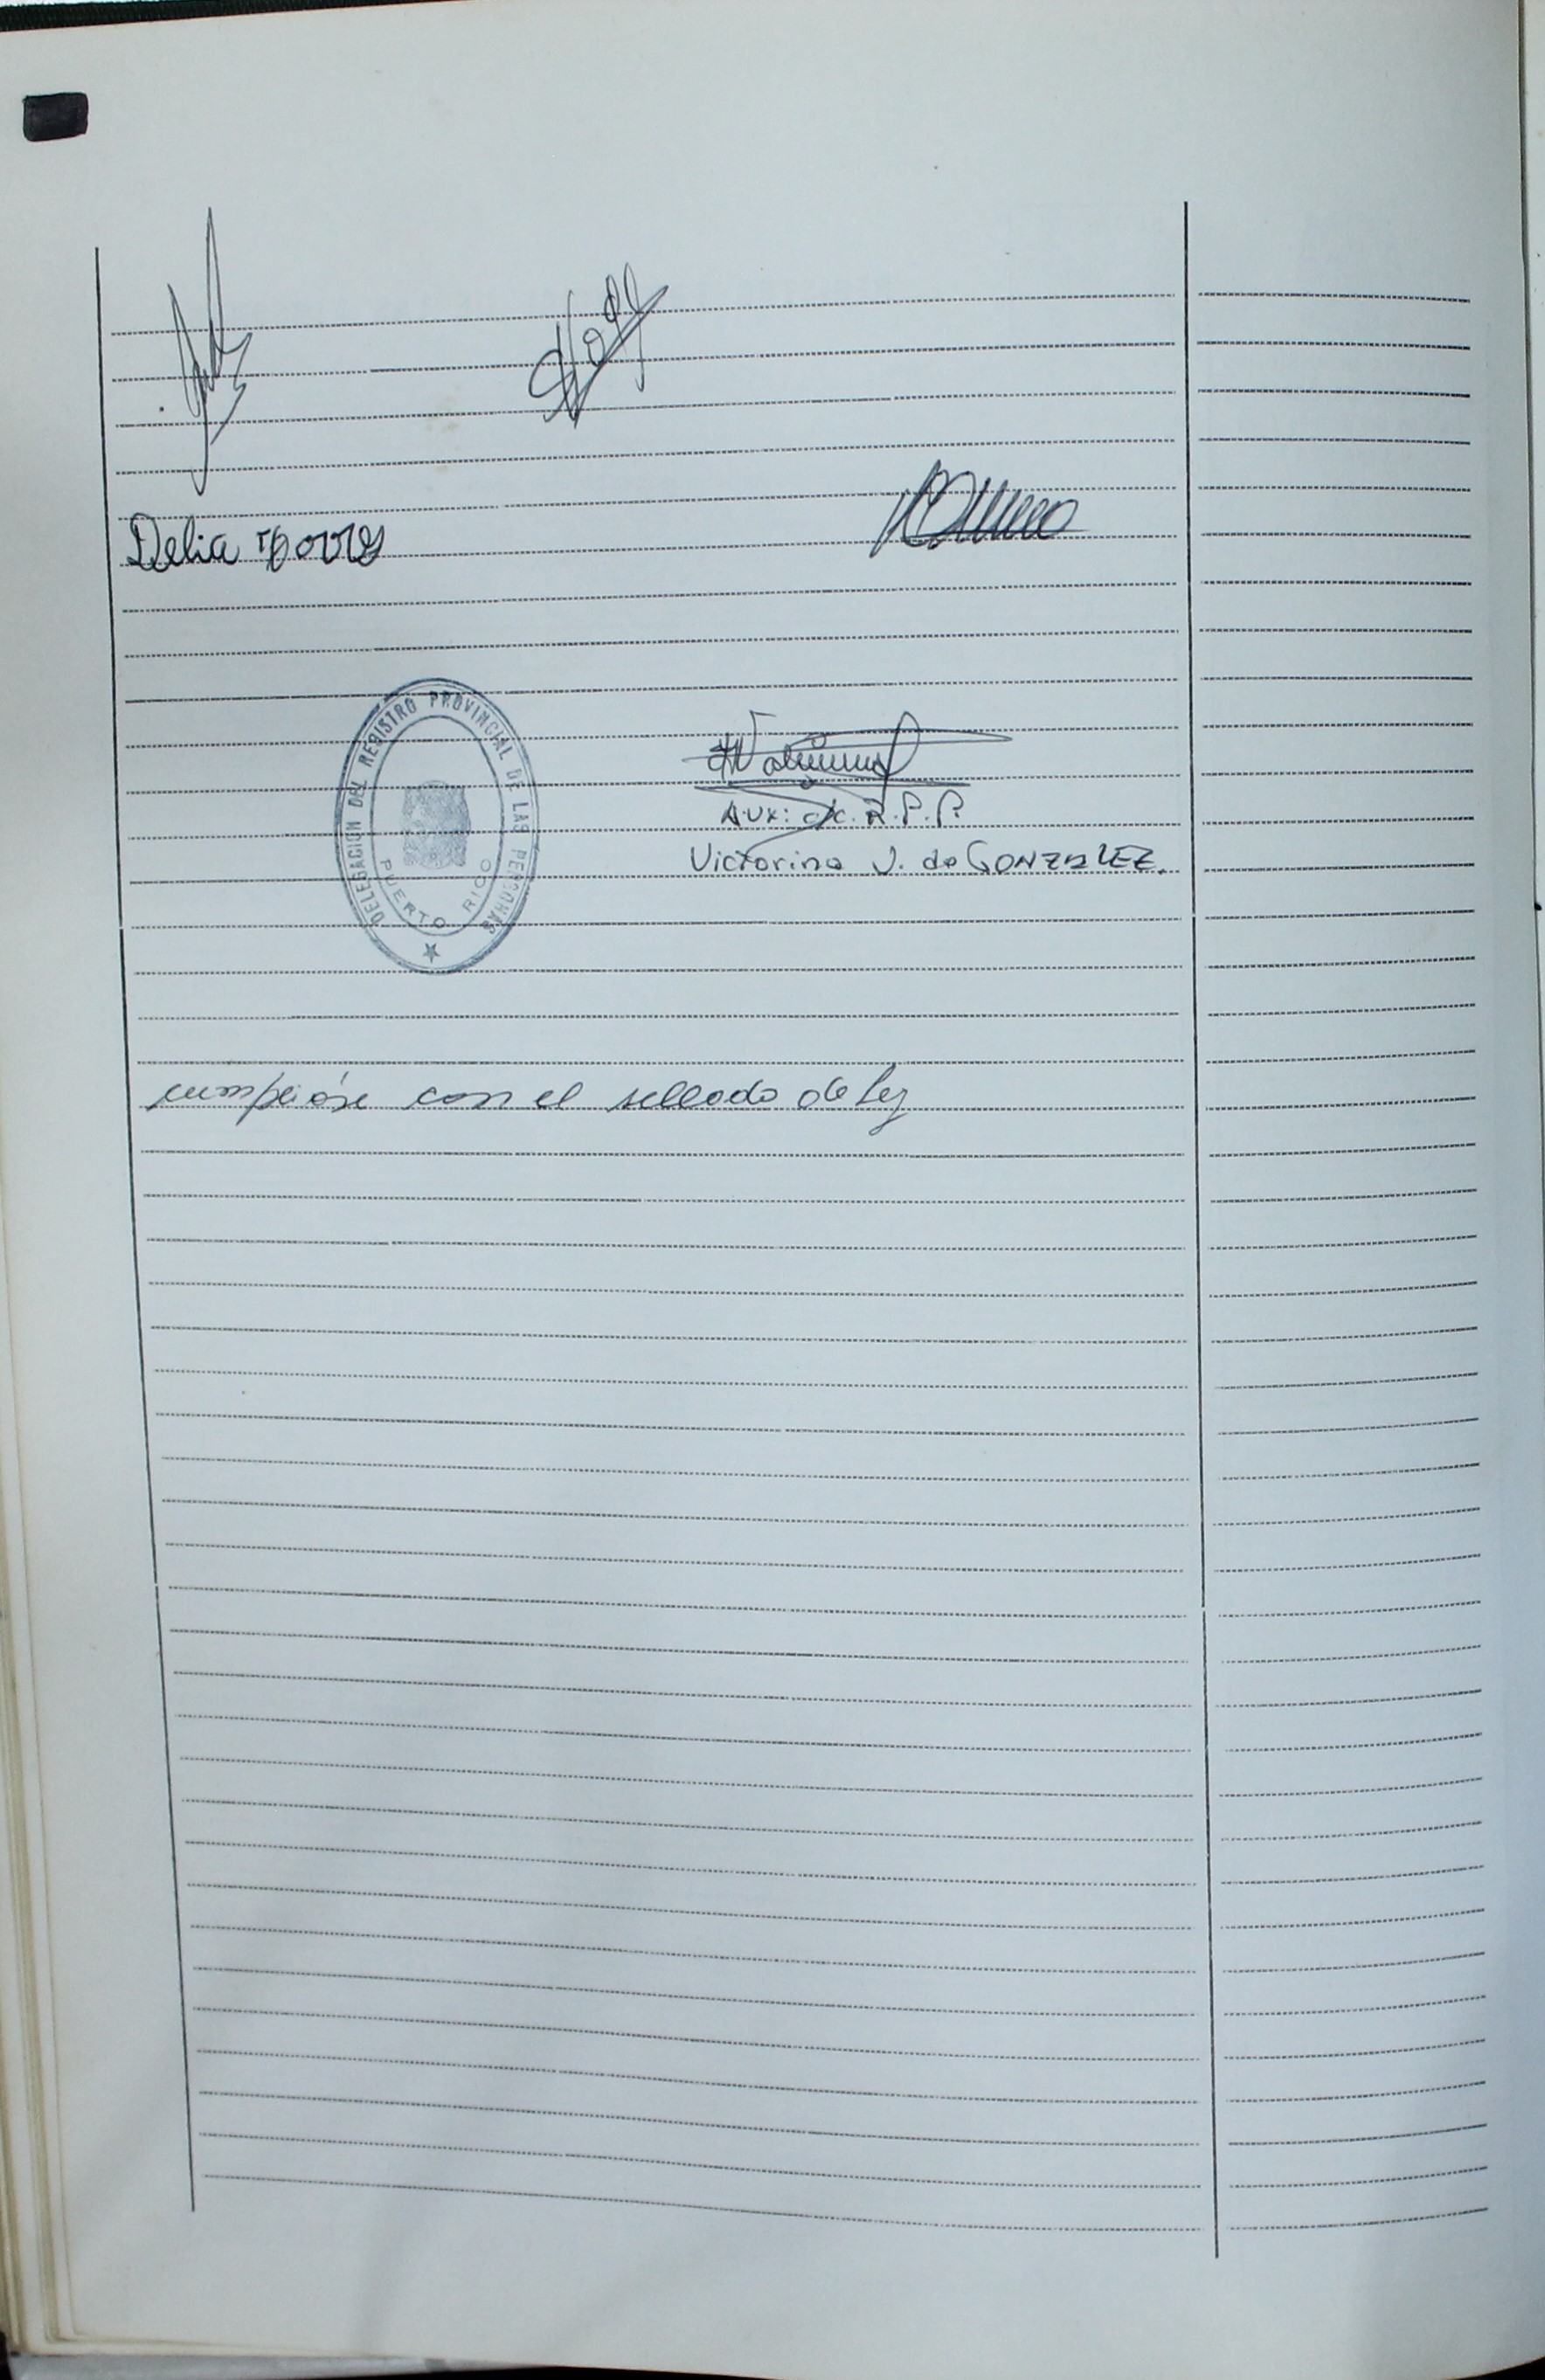 Delia Torres
DELEGACION DEL REGISTRO PROVINCIAL DE LAS PERSONAS
PUERTO RICO
Aux: de. R.P.P.
Victorina V. de GONZALEZ.
cumplióse con el sellado de Ley